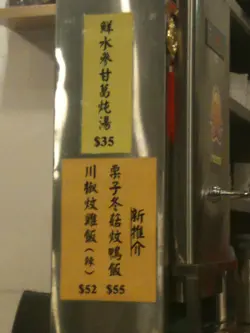 鮮水參甘蔔炖湯
$35
新推介
栗子冬菇炆鴨飯
$55
川椒炆雞飯(辣)
$52